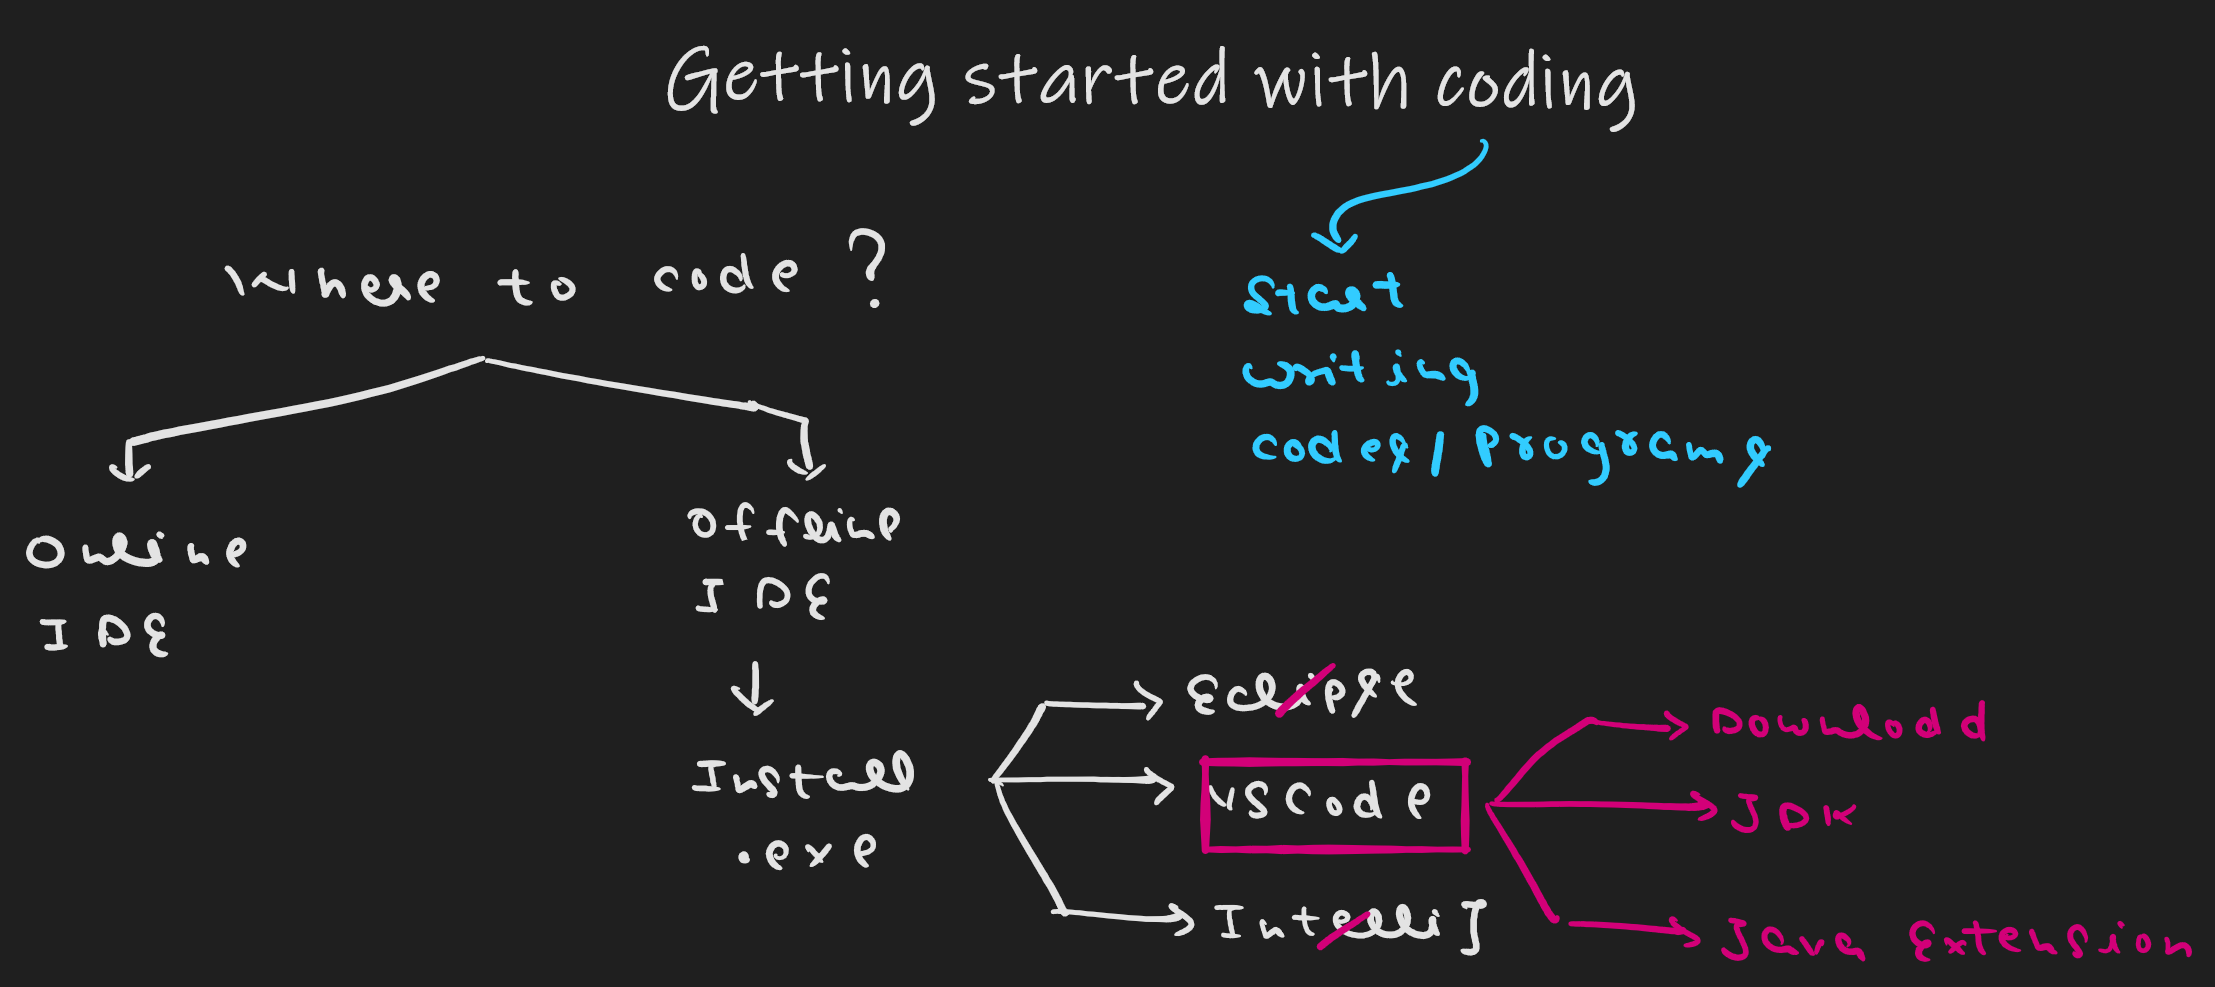 Getting started with coding
Where to code ?
Start
writing
codes / Programs
Online
IDE
Offline
IDE
Install
.exe
Eclipse
VS Code
IntelliJ
Download
JDK
Java Extension